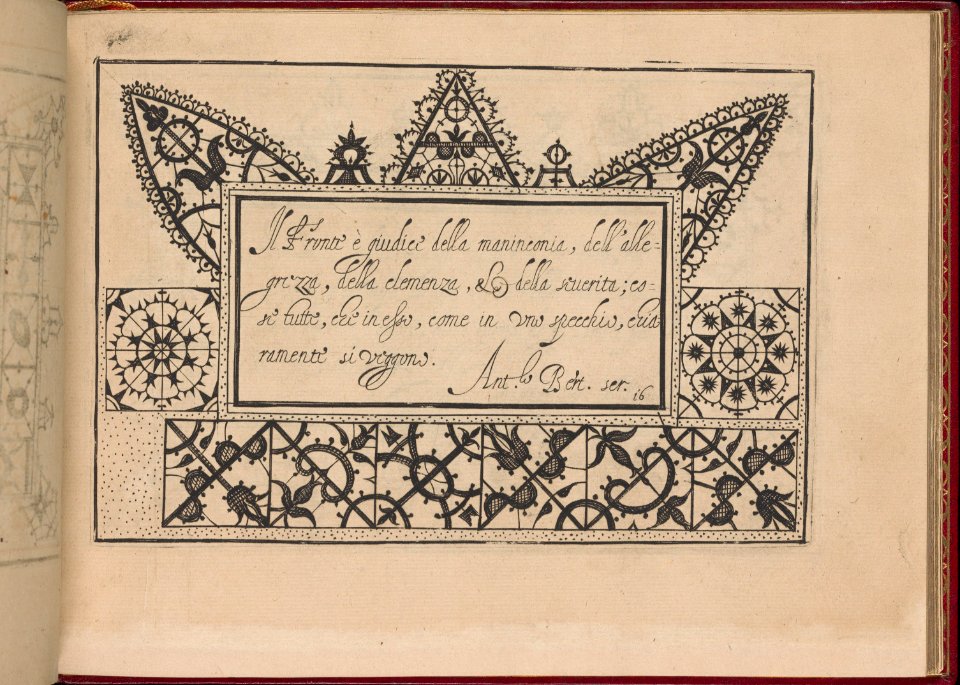 Il Fronte è giudice della maninconia, dell'alle-
grezza, della clemenza, & della seuerita; co-
se tutte, che in esse, come in uno specchio, chia
ramente si veggono.
Ant.º Bert. ser. 16